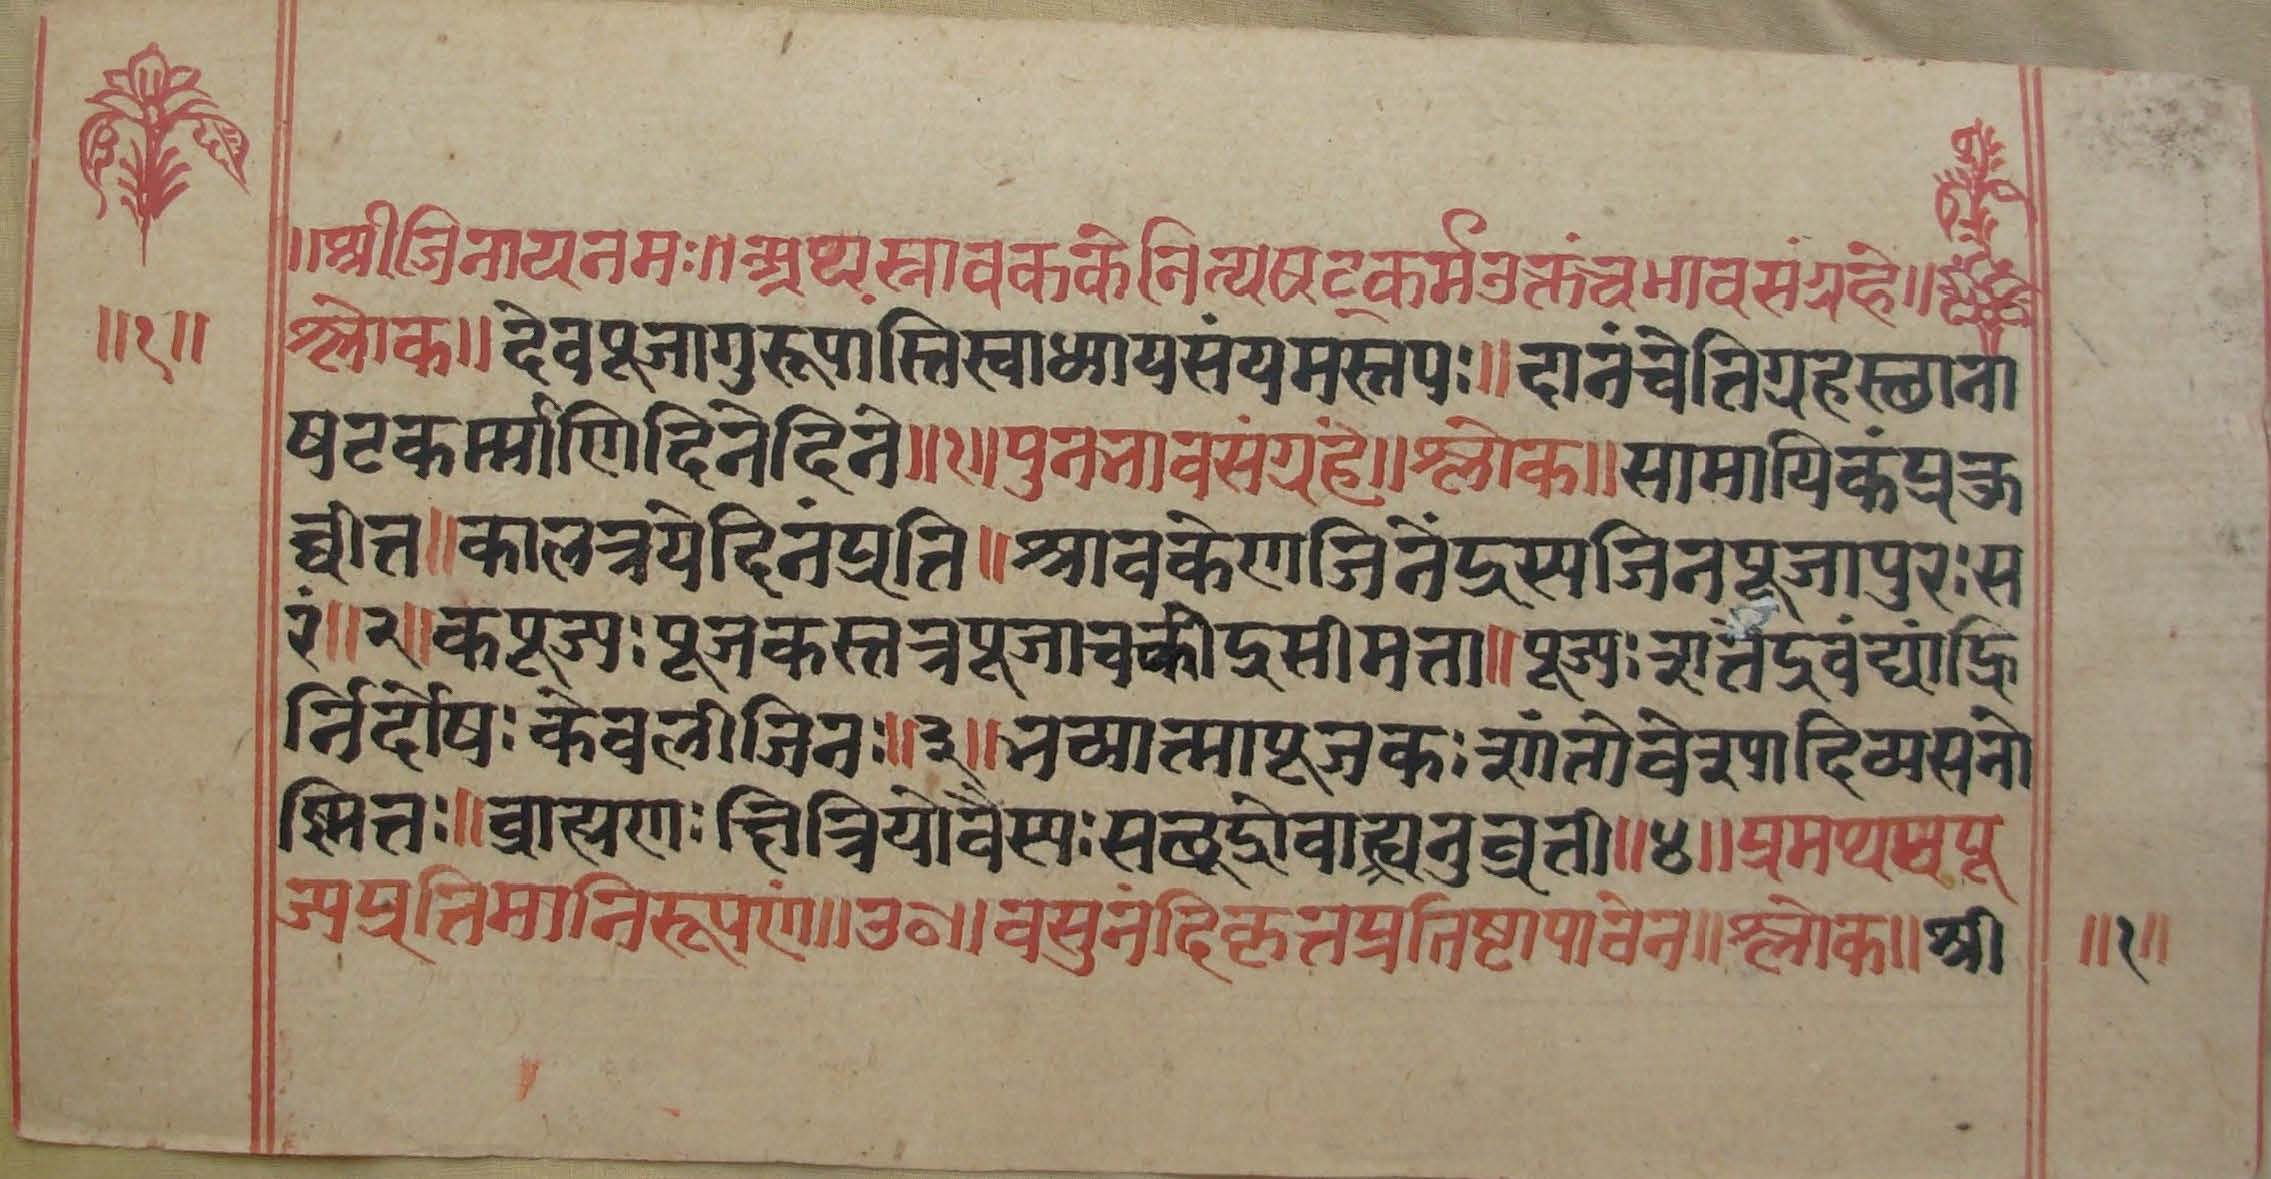 ॥श्रीजिनायनमः॥अथस्रावककेनित्यषट्कर्मउक्तंचभावसंग्रहे॥
॥१॥
श्लोक॥देवपूजागुरूपास्तिस्वाध्यायसंयमस्तपः॥दानंचेतिग्रहस्छाना
षटकर्म्माणिदिनेदिने॥१॥पुनर्भावसंग्रंहे॥श्लोक॥सामायिकंप्रकु
र्व्वीत॥कालत्रयेदिनंप्रति॥श्रावकेणजिनेंद्रस्यजिनपूजापुरःस
रं॥२॥कपूज्यःपूजकस्तत्रपूजाचकीद्रसीमता॥पूज्यः
र्निर्दोषःकेवलीजिनः॥३॥भव्यात्मापूजकःशांतोवेश्यादिव्यसनो
झितः॥ब्राह्मणःक्षित्रियोवैस्यःसछूद्रोवा॥४॥प्रमथ
ज्यप्रतिमानिरूपणं॥उ०॥वसुनंदिकृतप्रतिष्टापावेन॥श्लोक॥श्री
॥१॥